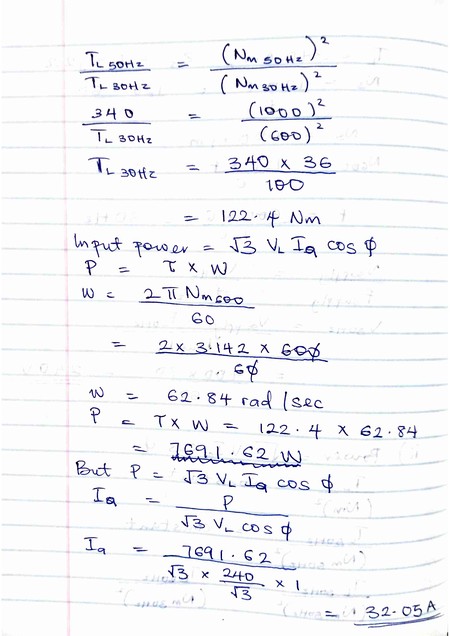 T_L 50Hz / T_L 30Hz = (Nm 50Hz)² / (Nm 30Hz)²
340 / T_L 30Hz = (1000)² / (600)²
T_L 30Hz = 340 × 36 / 100
= 122.4 Nm
Input power = √3 V_L I_a cos φ
P = τ × W
W = 2π Nm600 / 60
= 2 × 3.142 × 600 / 60
W = 62.84 rad/sec
P = T × W = 122.4 × 62.84
= 7691.62 W
But P = √3 V_L I_a cos φ
I_a = P / √3 V_L cos φ
I_a = 7691.62 / √3 × 240/√3 × 1
= 32.05A